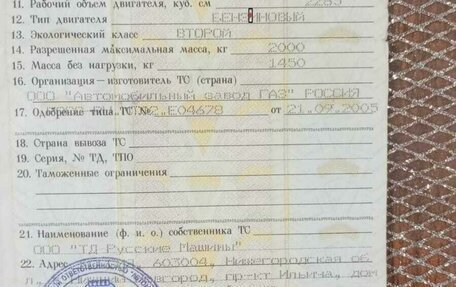 11. Рабочий объем двигателя, куб. см 2285
12. Тип двигателя БЕНЗИНОВЫЙ
13. Экологический класс ВТОРОЙ
14. Разрешенная максимальная масса, кг 2000
15. Масса без нагрузки, кг 1450
16. Организация—изготовитель ТС (страна)
ООО "Автомобильный завод ГАЗ" РОССИЯ
17. Одобрение типа ТС № Е04678 от 21.09.2005
18. Страна вывоза ТС
19. Серия, № ТД, ТПО
20. Таможенные ограничения
21. Наименование (ф. и. о.) собственника ТС
ООО "ТД Русские Машины"
22. Адрес 603004, Нижегородская об
л., город, пр-кт Ильича, дом